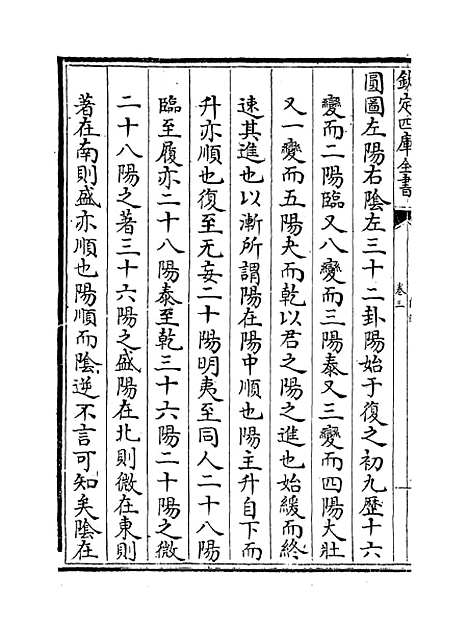 欽定四庫全書
卷三
圓圖左陽右陰左三十二卦陽始于復之初九歷十六
變而二陽臨又八變而三陽泰又三變而四陽大壯
又一變而五陽夬而乾以君之陽之進也始緩而終
速其進也以漸所謂陽在陽中順也陽主升自下而
升亦順也復至无妄二十陽明夷至同人二十八陽
臨至履亦二十八陽泰至乾三十六陽二十陽之微
二十八陽之著三十六陽之盛陽在北則微在東則
著在南則盛亦順也陽順而陰逆不言可知矣陰在